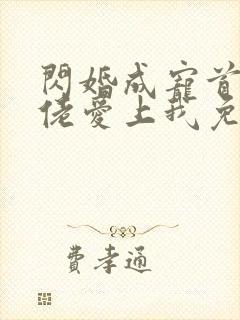 閃婚成寵首
佬愛上我免
費孝通